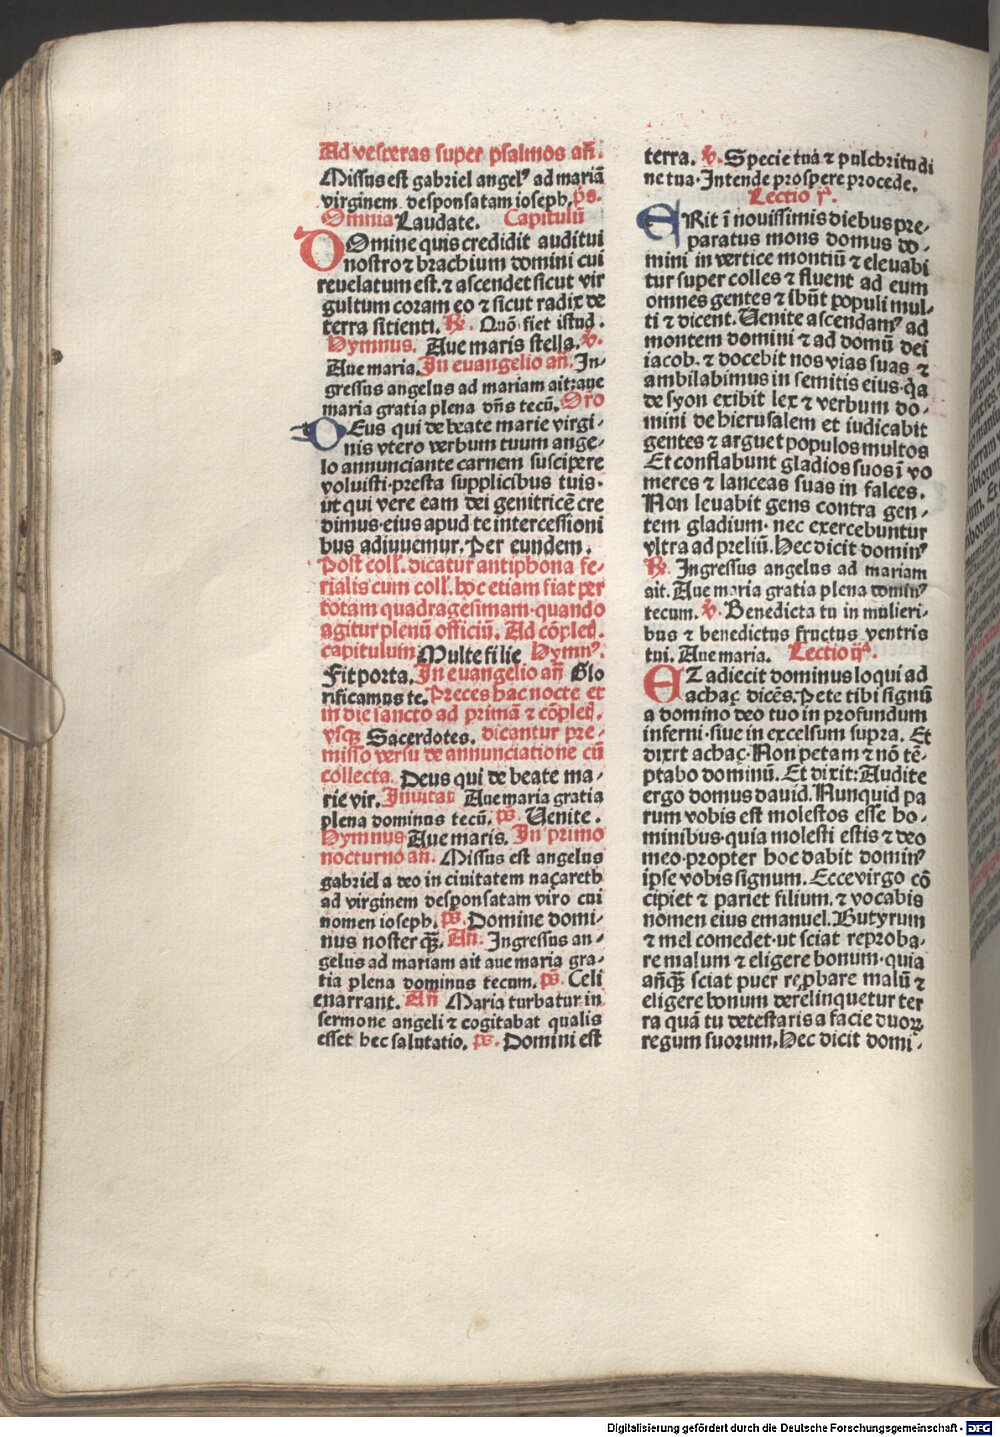 Ad vesperas super psalmos añ.
Missus est gabriel angelꝰ ad mariā
virginem desponsatam ioseph. ps.
Omnia Laudate. Capitulū
DOmine quis credidit auditui
nostro ⁊ brachium domini cui
reuelatum est. ⁊ ascendet sicut vir
gultum coram eo ⁊ sicut radix de
terra sitienti. ℟. Quō fiet istud.
Hymnus. Aue maris stella. ℣.
Aue maria. In euangelio añ. In-
gressus angelus ad mariam ait: aue
maria gratia plena dñs tecū. Oro
DEus qui de beate marie virgi-
nis vtero verbum tuum ange-
lo annunciante carnem suscipere
voluisti· presta supplicibus tuis.
ut qui vere eam dei genitricē cre
dimus· eius apud te intercessioni
bus adiuuemur. Per eundem.
Post coll. dicatur antiphona fe-
rialis cum coll. hoc etiam fiat per
totam quadragesimam· quando
agitur plenū officiū. Ad cōpled.
capitulum Multe filie Hymnꝰ.
Fit porta. In euangelio añ Glo
rificamus te. Preces hac nocte et
in die sancto ad primā ⁊ cōpled.
vsqꝫ Sacerdotes. dicantur pre-
misso versu de annunciatione cū
collecta. Deus qui de beate ma-
rie vir. Inuitat Aue maria gratia
plena dominus tecū. ps. Uenite.
Hymnus Aue maris. In primo
nocturno añ. Missus est angelus
gabriel a deo in ciuitatem naçareth
ad virginem desponsatam viro cui
nomen ioseph. ps. Domine domi-
nus noster qꝫ. Añ. Ingressus an-
gelus ad mariam ait aue maria gra-
tia plena dominus tecum. ps. Celi
enarrant. Añ Maria turbatur in
sermone angeli ⁊ cogitabat qualis
esset hec salutatio. ps. Domini est
terra. ℣. Specie tua ⁊ pulchritudi
ne tua· Intende prospere procede.
Lectio ja.
ERit ī nouissimis diebus pre-
paratus mons domus do-
mini in vertice montiū ⁊ eleuabi
tur super colles ⁊ fluent ad eum
omnes gentes ⁊ ibūt populi mul-
ti ⁊ dicent. Uenite ascendamꝰ ad
montem domini ⁊ ad domū dei
iacob. ⁊ docebit nos vias suas ⁊
ambilabimus in semitis eius· q̄a
de syon exibit lex ⁊ verbum do-
mini de hierusalem et iudicabit
gentes ⁊ arguet populos multos
Et conflabunt gladios suos ī vo
meres ⁊ lanceas suas in falces.
Non leuabit gens contra gen-
tem gladium· nec exercebuntur
vltra ad preliū. Hec dicit dominꝰ
℟. Ingressus angelus ad mariam
ait. Aue maria gratia plena dominꝰ
tecum. ℣. Benedicta tu in mulieri-
bus ⁊ benedictus fructus ventris
tui. Aue maria. Lectio ijª.
ET adiecit dominus loqui ad
achaç dicēs. Pete tibi signū
a domino deo tuo in profundum
inferni· siue in excelsum supra. Et
dixrt achaç· Non petam ⁊ nō tē-
ptabo dominū. Et dixit: Audite
ergo domus dauid. Nunquid pa
rum vobis est molestos esse ho-
minibus· quia molesti estis ⁊ deo
meo· propter hoc dabit dominꝰ
ipse vobis signum. Ecce virgo cō
cipiet ⁊ pariet filium. ⁊ vocabis
nomen eius emanuel. Butyrum
⁊ mel comedet· ut sciat reproba-
re malum ⁊ eligere bonum· quia
añqꝫ sciat puer reꝓbare malū ⁊
eligere bonum derelinquetur ter
ra quā tu detestaris a facie duoꝝ
regum suorum. Hec dicit domi-
Digitalisierung gefördert durch die Deutsche Forschungsgemeinschaft - DFG